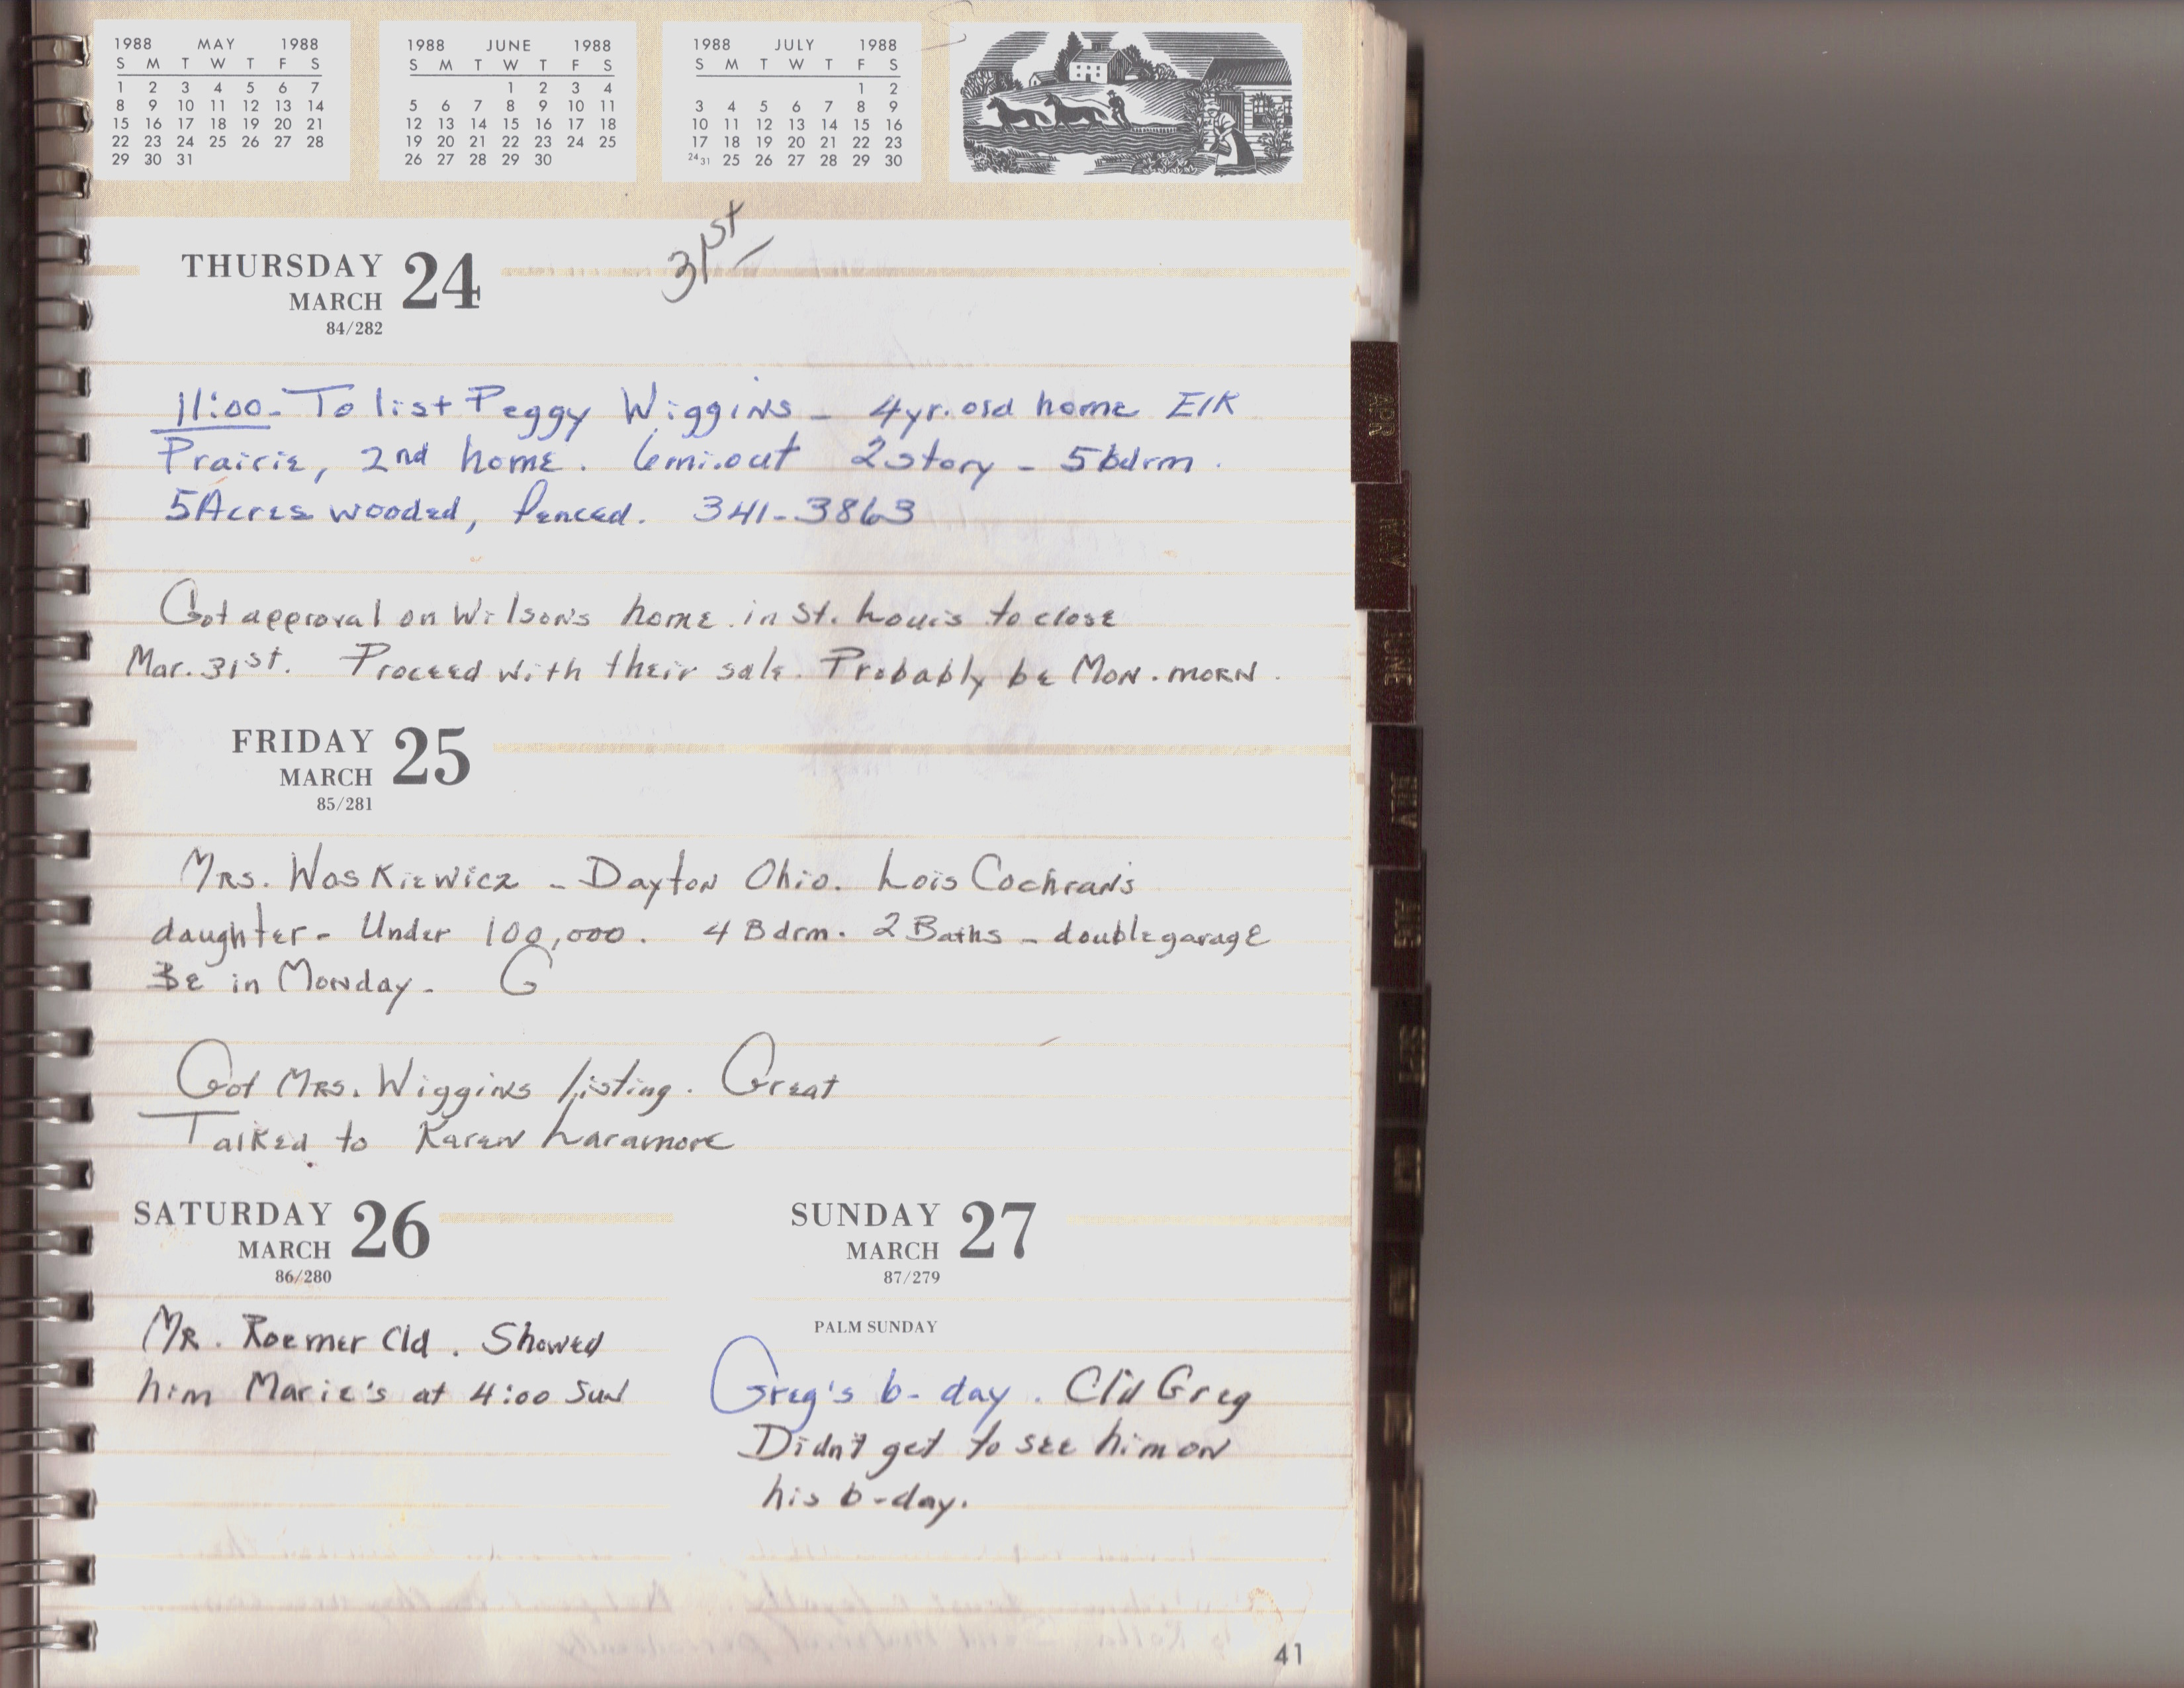 1988 MAY 1988
S M T W T F S
1 2 3 4 5 6 7
8 9 10 11 12 13 14
15 16 17 18 19 20 21
22 23 24 25 26 27 28
29 30 31
1988 JUNE 1988
S M T W T F S
1 2 3 4
5 6 7 8 9 10 11
12 13 14 15 16 17 18
19 20 21 22 23 24 25
26 27 28 29 30
1988 JULY 1988
S M T W T F S
1 2
3 4 5 6 7 8 9
10 11 12 13 14 15 16
17 18 19 20 21 22 23
24 31 25 26 27 28 29 30
31st
THURSDAY 24
MARCH
84/282
11:00- To list Peggy Wiggins - 4yr. old home Elk
Prairie, 2nd home. 6mi.out 2 story - 5bdrm.
5 Acres wooded, fenced. 341-3863
Got approval on Wilson's home in St. Louis to close
Mar. 31st. Proceed with their sale. Probably be Mon. morn.
FRIDAY 25
MARCH
85/281
Mrs. Waskiewicz - Dayton Ohio. Lois Cochran's
daughter - Under 100,000. 4 Bdrm. 2 Baths - double garage
Be in Monday - G
Got Mrs. Wiggins listing. Great
Talked to Karen Laramore
SATURDAY 26
MARCH
86/280
Mr. Roemer Cld. Showed
him Marie's at 4:00 Sun
SUNDAY 27
MARCH
87/279
PALM SUNDAY
Greg's b-day. Cld Greg
Didn't get to see him on
his b-day.
41
APR
MAY
JUNE
JULY
AUG
SEPT